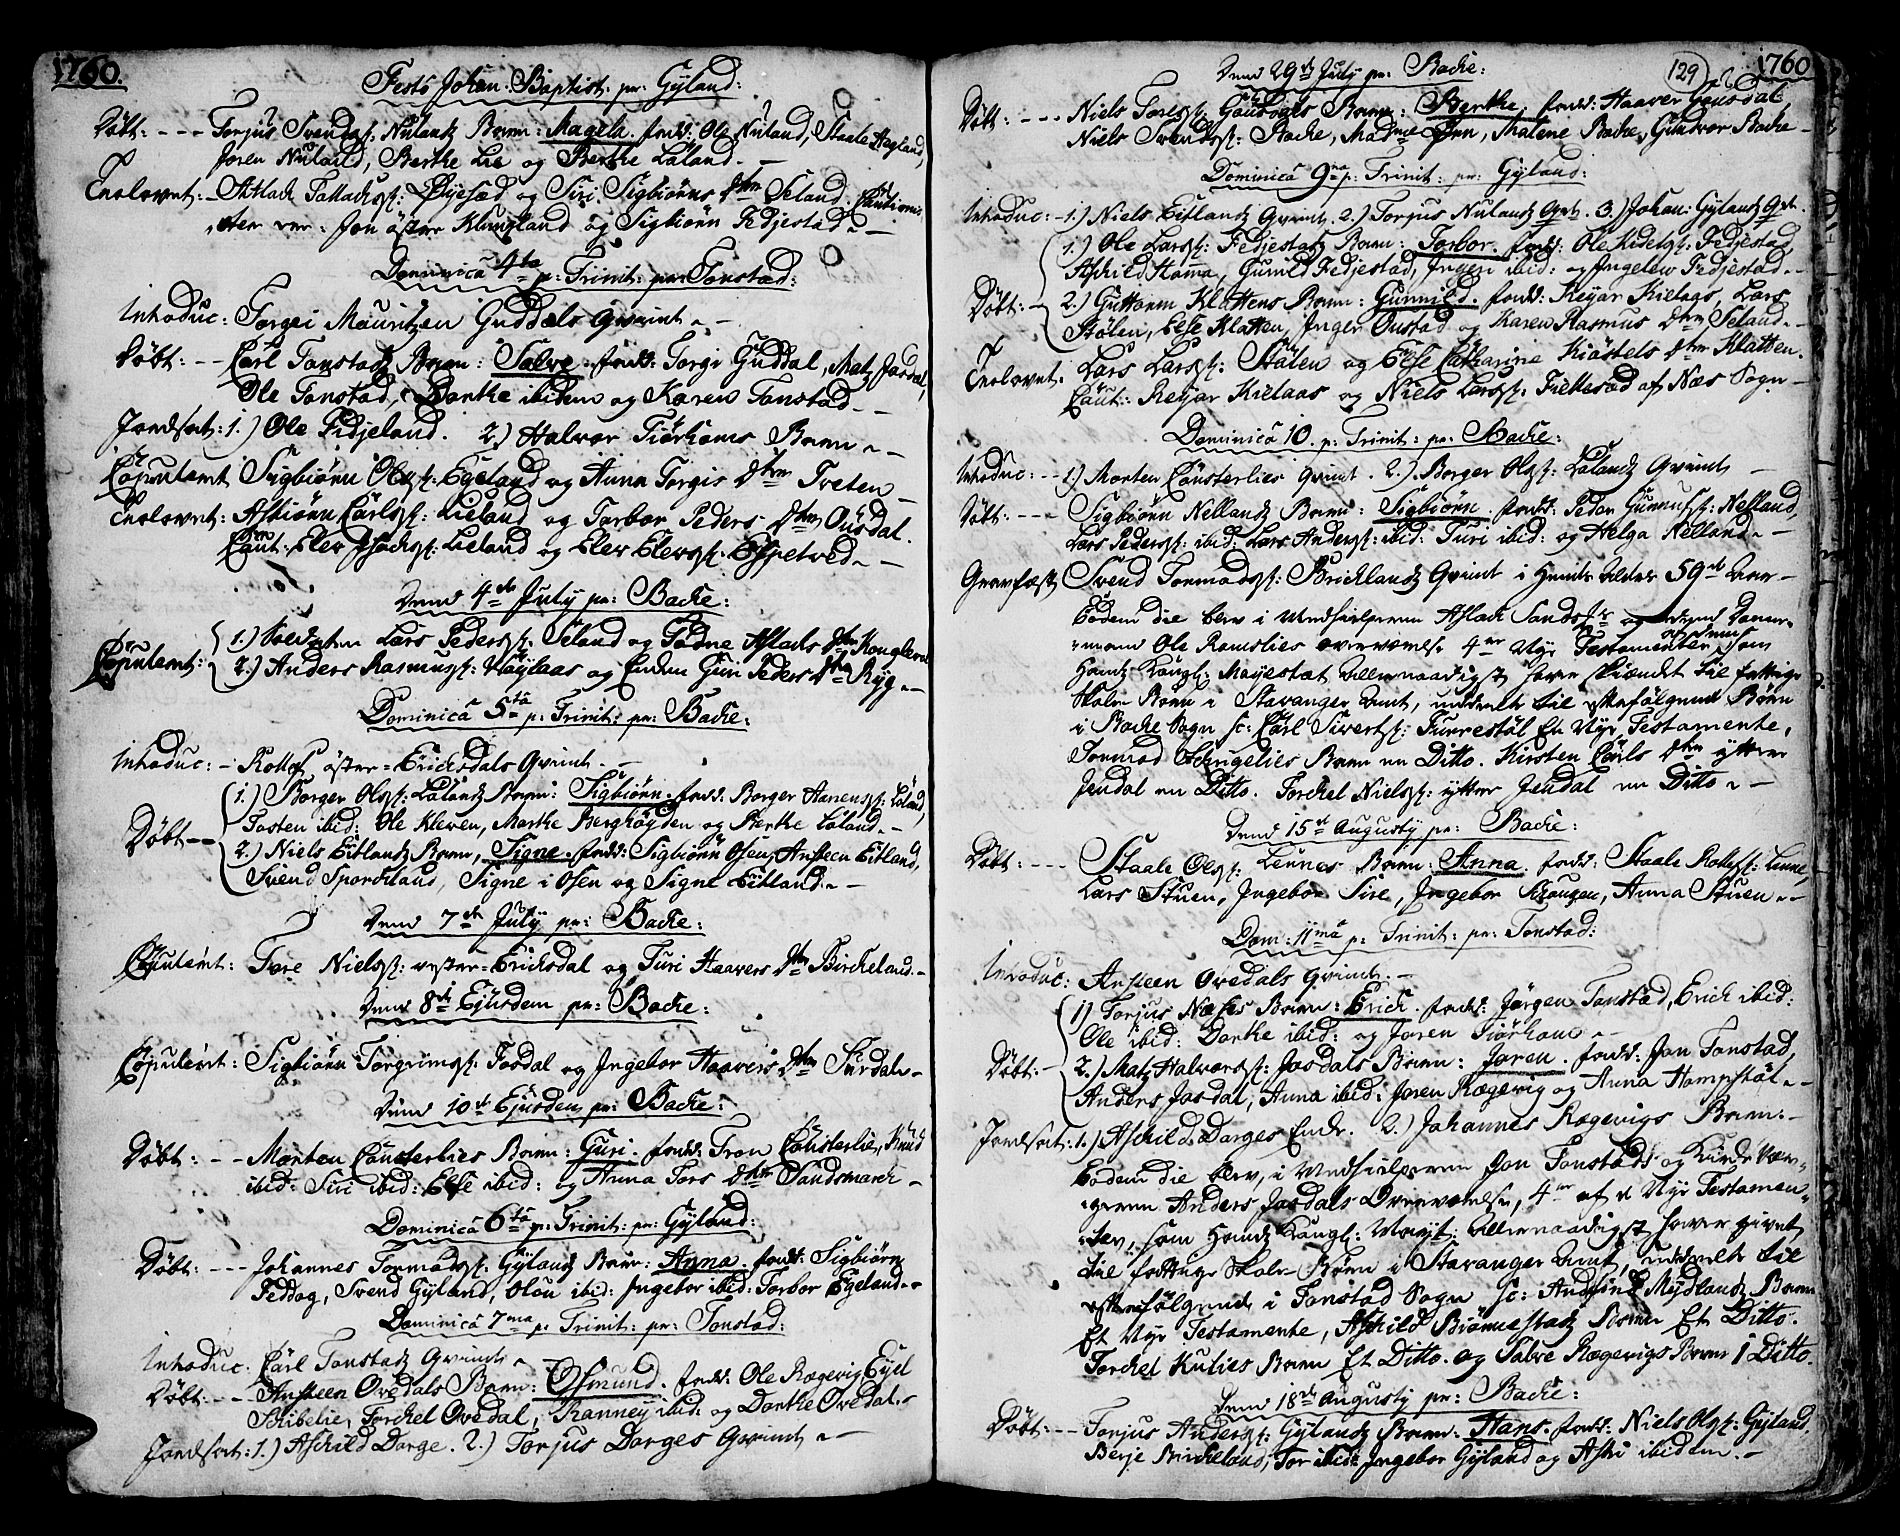 1760.
Festo Johan. Baptist. pr: Gÿland:
Döbt: --- Torjus Svends: Nulands Barn: Magela. fadd: Ole Nuland, Staale Hægland,
Joren Nuland, Berthe Lie og Berthe Låland. -
Trolovet: - Atlack Tallacks: Øÿesæd og Siri Sigbiörns Dtter Seland. Cautioni-
ster vare: Jon öster Klungland og Sigbiörn Fedjestad. -
Dominica 4ta p: Trinit: pr: Tonstad:
Introduc: Torgei Mauritzen Guddals Qvinde. -
Döbt: -- Carl Tonstads Barn: Salve. fadd: Torgi Guddal, Matz Josdal,
Ole Tonstad, Dorthe ibidem og Karen Tonstad. -
Jordfæst: 1.) Ole Fidjeland. 2.) Halvor Tiörhoms Barn. -
Copulerut Sigbiörn Ols: Egeland og Anna Torgis Dtter Tveten -
Trolovet: Asbiörn Carls: Lieland og Torbor Peders Dtter Ousdal.
Caut. Elev Isacks: Lieland og Elev Elevs: Espetved. -
Dend 4de July pr: Backe:
Copulerut: 1.) Soldaten Lars Peders: Seland og Tadne Aslacks Dtter Konglevol
2.) Anders Rasmus: Haÿlaas og Enken Guri Peders Dtter Rÿg. -
Dominica 5ta p: Trinit: pr: Backe:
Introduc: - Rollef öster-Ericksdals Qvinde. -
Döbt -- 1.) Borger Ols: Lålands Barn: Sigbiörn. fadd: Borger Hanens: Låland,
Tosten ibid: Ole Kleven, Marthe Berghögden og Berthe Låland. -
2.) Niels Eitlands Barn, Signe. fadd: Sigbiörn Osen, Ansteen Eitland,
Svend Spordsland, Signe i Osen og Signe Eitland. -
Dend 7de July pr: Backe:
Copulerut: Tore Niels: vester-Ericksdal og Turi Haavers Dtter Birckeland. -
Dend 8de Ejusdem pr: Backe:
Copulerut: Sigbiörn Torgrims: Josdal og Ingebor Haavers Dtter Sirdal. -
Dend 10de Ejusdem pr: Backe:
Döbt: -- Morten Counsterlies Barn: Guri. fadd: Tron Counsterlie, Knud
ibid: Siri ibid: Else ibid: og Anna Tors Dtter Sandsmarck -
Dominica 6ta p: Trinit: pr: Gÿland:
Döbt: --- Johannes Tormods: Gÿlands Barn: Anna. fadd: Sigbiörn
Feddog, Svend Gÿland, Olou ibid: Ingebor ibid: Torbor Egeland. -
Dominica 7ma p: Trinit: pr: Tonstad:
Introduc: Carl Tonstads Qvinde -
Döbt: --- Ansteen Ovedals Barn: Osmund. fadd: Ole Rægevig, Eÿel
Skibelie, Torckel Ovedal, Ranneÿ ibid: og Dorthe Ovedal. -
Jordfæst: 1.) Aschild Dorge. 2.) Torjus Dorges Qvinde -
129 1760
Dend 29de July pr: Backe:
Döbt: --- Niels Tors: Gousdals Barn: Berthe. fadd: Haaver Gousdal,
Niels Svends: Backe, Madme Örn, Malene Backe, Gundvor Backe -
Dominica 9na p: Trinit: pr: Gÿland:
Introduc: - 1.) Niels Eitlands Qvinde. 2.) Torjus Nulands Qvi. 3.) Johan: Gÿlands Qvi.
Döbt: - 1.) Ole Lars: Fedjestads Barn: Torbor. fadd: Ole Kidels: Fedjestad,
Aschild Homme, Gunild Fedjestad, Ingeri ibid: og Ingelew Fedjestad. -
2.) Guttorm Klattens Barn: Gunnild. fadd: Reÿar Kielaas, Lars
Stölen, Else Klatten, Inger Oustad og Karen Rasmus Dtter Seland. -
Trolovet: Lars Lars: Stölen og Else Catharine Kiöstels Dtter Klatten.
Caut: Reÿar Kielaas og Niels Lars: Fickesad af Næs Sogn -
Dominica 10. p: Trinit: pr: Backe:
Introduc: -- 1.) Morten Counsterlies Qvinde. 2.) Borger Ols: Lålands Qvinde -
Döbt: --- Sigbiörn Nellands Barn: Sigbiörn. fadd: Peder Gunnufs: Nelland,
Lars Peders: ibid: Lars Anders: ibid: Turi ibid: og Helga Nelland. -
Gravfæst Svend Tormods: Bricklands Qvinde i hendes Alder 59de Aar -
Eodem die blev i Medhielperen Aslack Sands og dend Danne-
mand Ole Ramslies overværelse 4re Nÿe Testamenter, som
Hands Kongl: Maÿestæt allernaadigst haver skiæncket til fattige
Skole Börn i Stavanger Amt, uddeelt til efterfölgende Börn
i Backe Sogn sc: Carl Siverts: Furrestöl Et Nÿe Testamente,
Tormod Skugelies Barn en Ditto. Kirsten Carls Dtter ÿttre
Jendal en Ditto. Torckel Niels: ÿttre Jendal en Ditto. -
Dend 15de Augustÿ pr: Backe:
Döbt: --- Staale Ols: Lennes Barn: Anna. fadd: Staale Rollefs: Lenne,
Lars Stuen, Ingebor Sire, Ingebor Skougen, Anna Stuen. -
Dom: 11ma p: Trinit: pr: Tonstad:
Introduc: Ansteen Ovedals Qvinde. -
Döbt: - 1) Torjus Næses Barn: Erick. fadd: Jörgen Tonstad, Erick ibid:
Ole ibid: Dorthe ibid: og Joren Tiörhom -
2.) Matz Halvords: Josdals Barn: Joren. fadd: Jon Tonstad,
Anders Josdal, Anna ibid: Joren Rægevig og Anna Hompstöl. -
Jordfæst: 1.) Aschild Dorges Enke. 2.) Johannes Rægevigs Barn. -
Eodem die blev, i Medhielperen Jon Tonstads og Kirke Vær-
gerens Anders Josdals Overværelse, 4re af de Nÿe Testamen-
ter, som Hands Kongl: Maÿt: allernaadigst haver givet
til fattige Skole Börn i Stavanger Amt, uddeelt til
efterfölgende i Tonstad Sogn sc: Mÿdlands Barn
Et Nÿe Testamente, Aschild Biönnestads Barn Et Ditto.
Torckel Kulies Barn Et Ditto. og Salve Rægevigs Barn 1 Ditto.
Dend 18de Augustÿ pr: Backe:
Döbt: -- Torjus Anders: Gÿlands Barn: Hans. fadd: Niels Ols: Gÿland,
Berje Birckeland, Tor ibid: Ingebor Gÿland og Astri ibidem. -